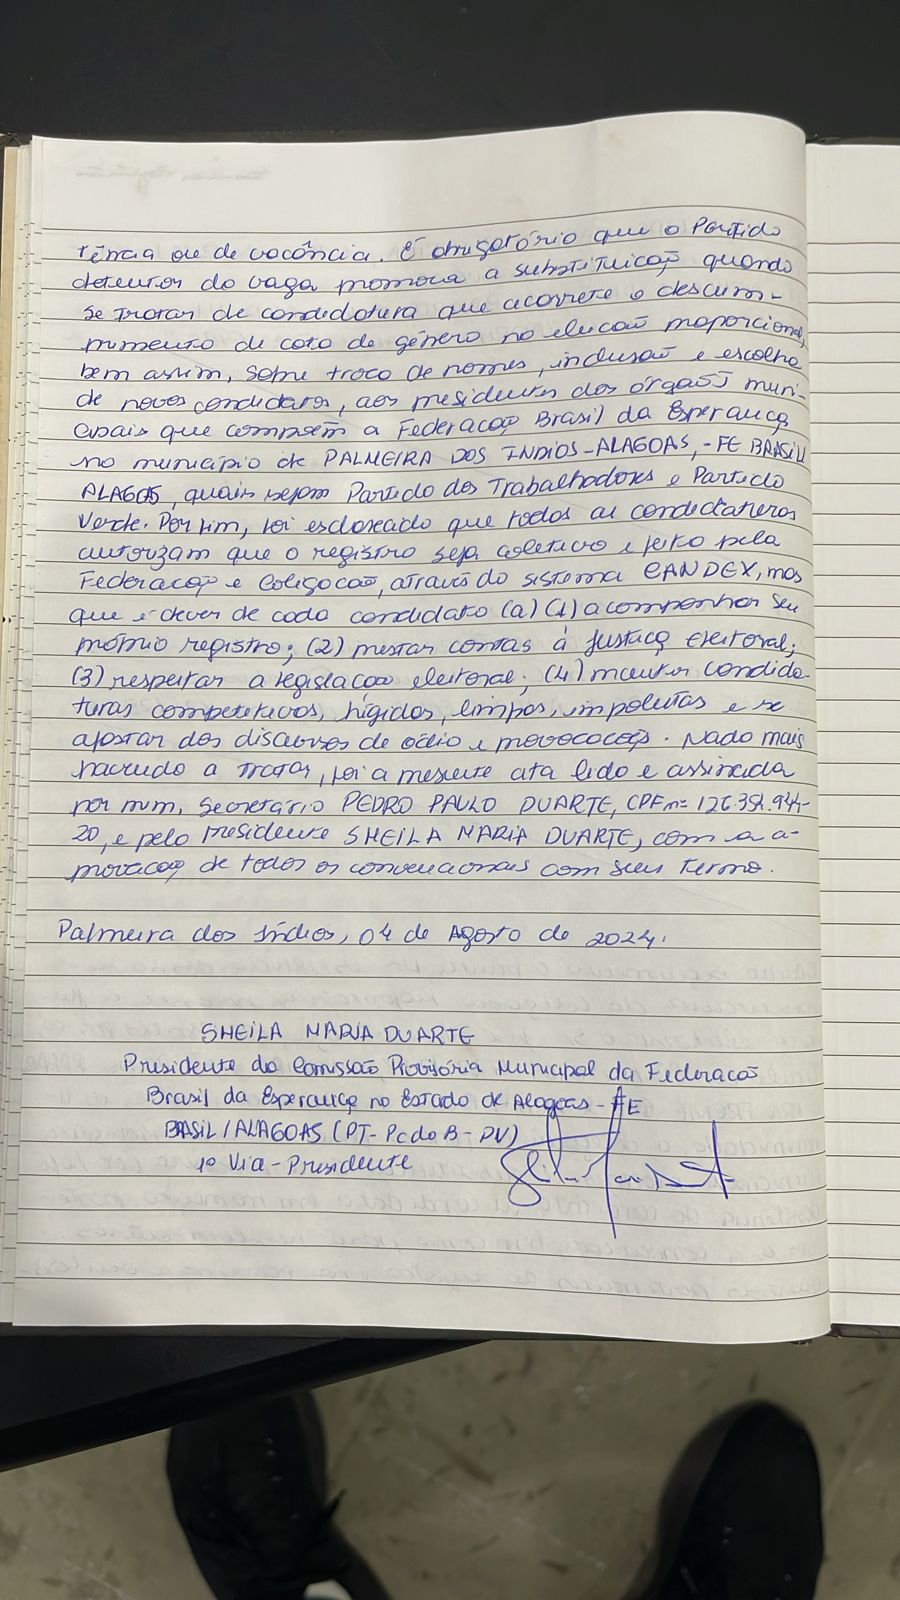 tência ou de vacância. É obrigatório que o Partido
detentor da vaga promova a substituição quando
se tratar de candidatura que acarrete o descum-
primento de cota de gênero na eleição proporcional,
bem assim, sobre troca de nomes, inclusão e escolha
de novos candidatos, aos presidentes dos órgãos muni-
cipais que compõem a Federação Brasil da Esperança
no município de PALMEIRA DOS INDIOS-ALAGOAS,-FE BRASIL
ALAGOS, quais sejam Partido dos Trabalhadores e Partido
Verde. Por fim, foi esclareado que todos os
autorizam que o registro seja coletivo e feito pela
Federação e Coligação, através do sistema CANDEX, mas
que é dever de cada candidato (a) (1) acompanhar seu
próprio registro; (2) prestar contas à Justiça Eleitoral;
(3) respeitar a legislação eleitoral; (4) manter candida-
turas competitivas, hígidas, limpas, impolutas e se
afastar dos discursos de ódio e provocação. Nada mais
havendo a tratar, foi a presente ata lida e assinada
por mim, Secretário PEDRO PAULO DUARTE, CPF nº
20, e pelo presidente SHEILA MARIA DUARTE, com a a-
provação de todos os convencionais com seu termo.
Palmeira dos Índios, 04 de Agosto de 2024.
SHEILA MARIA DUARTE
Presidente da Comissão Provisória Municipal da Federação
Brasil da Esperança no Estado de Alagoas-FE
BASIL/ALAGOAS (PT-PcdoB-PV)
1º Via-Presidente